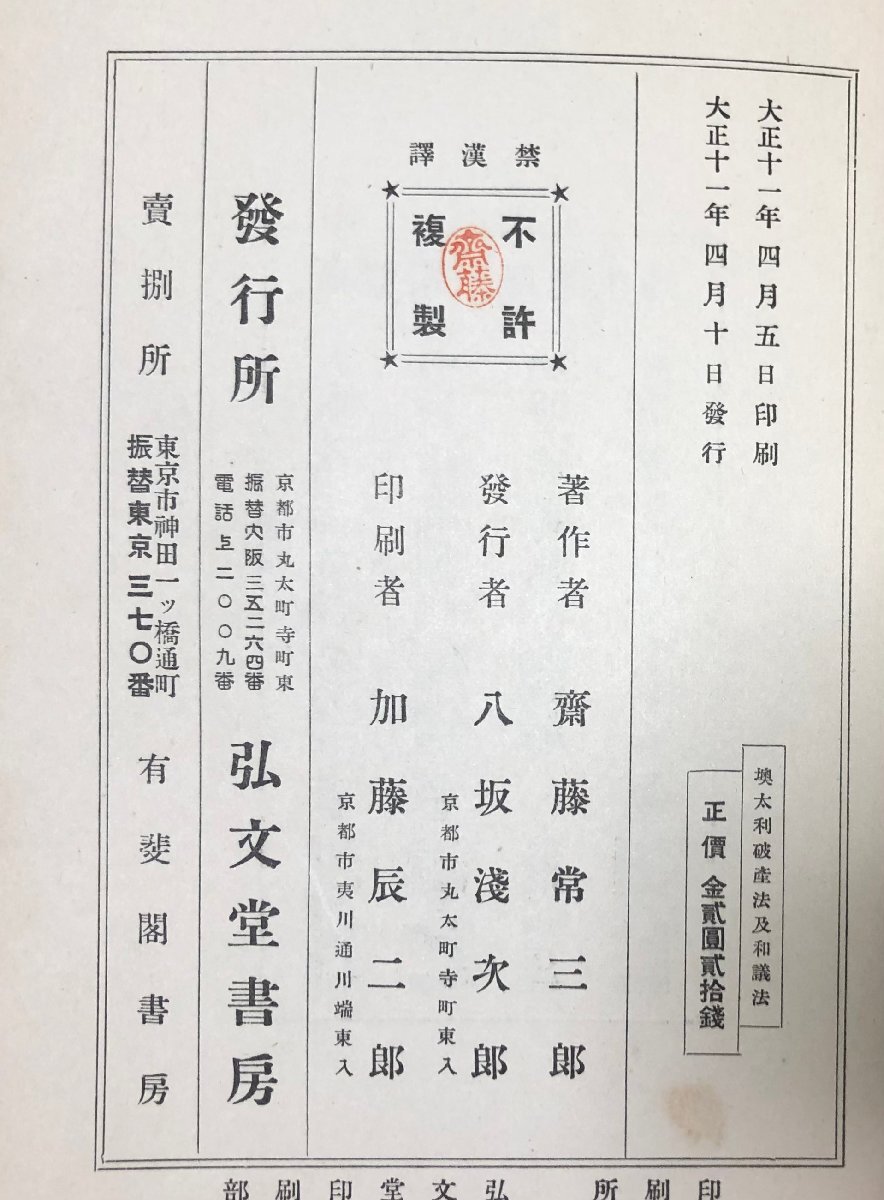 大正十一年四月五日印刷
大正十一年四月十日發行
墺太利破産法及和議法
正價金貳圓貳拾錢
禁漢譯
不許
複製
齋藤
著作者 齋藤常三郎
發行者 八坂淺次郎
京都市丸太町寺町東入
印刷者 加藤辰二郎
京都市夷川通川端東入
發行所
京都市丸太町寺町東
振替大阪三五二六四番
電話上二〇〇九番
弘文堂書房
賣捌所
東京市神田一ッ橋通町
振替東京三七〇番
有斐閣書房
印刷所 弘文堂印刷部